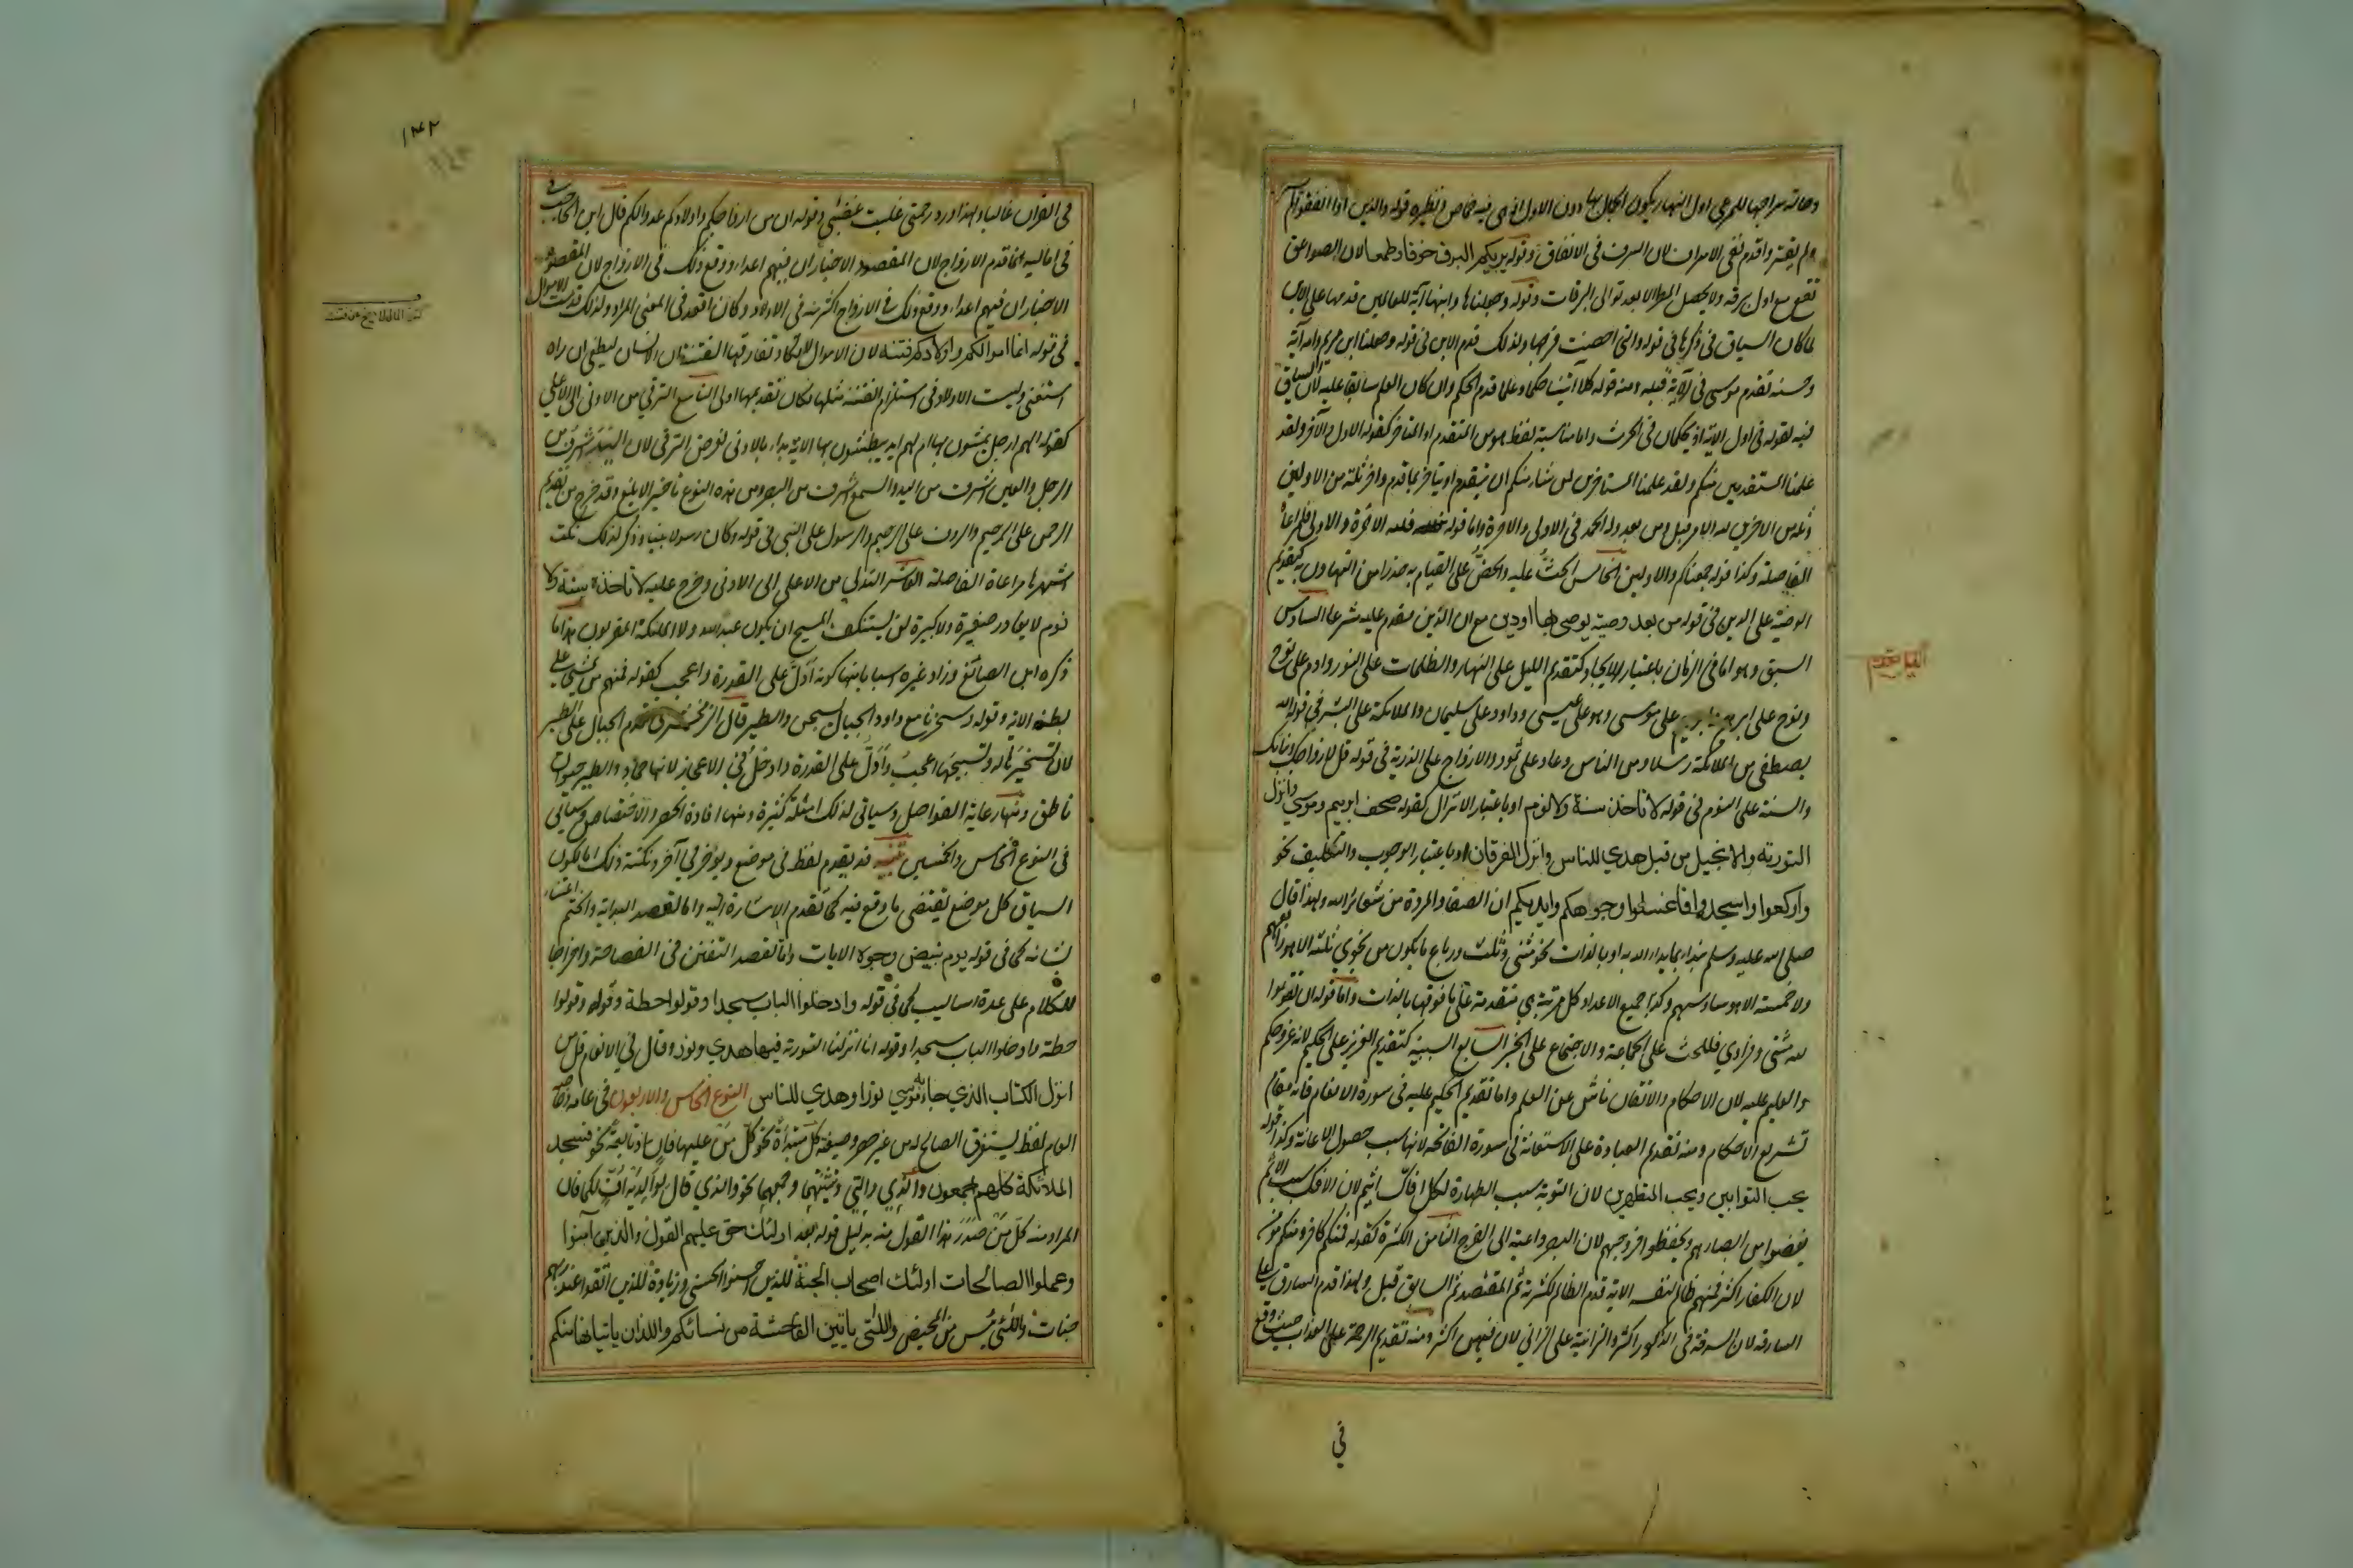 وحالة سراحها للمرعى اول النهار يكون الجمال بها دون الاول اذ هى فيه خماص ونظيره قوله والذين اذا انفقوا لم
ولم يقتروا قدم نفى الاسراف لان السرف فى الانفاق وقوله يريكم البرق خوفا وطمعا لان الصواعق
تقع مع اول برقة ولا يحصل المطر الا بعد توالى البرقات وقوله وجعلناها وابنها آية للعالمين قدمها على الابن
لما كان السياق فى ذكرها فى قوله والتى احصنت فرجها ولذلك قدم الابن فى قوله وجعلنا ابن مريم وامه آية
وحسنه تقدم موسى فى الآية قبله ومنه قوله كلا آتينا حكما وعلما قدم الحكم وان كان العلم سابقا عليه لان السياق
فيه لقوله فى اول الآية اذ يحكمان فى الحرث واما مناسبة لفظ هو من التقدم او التاخر كقوله الاول والآخر ولقد
علمنا المستقدمين منكم ولقد علمنا المستاخرين لمن شاء منكم ان يتقدم او يتاخر بما قدم واخر ثلة من الاولين
وثلة من الاخرين لله الامر قبل ومن بعد وله الحمد فى الاولى والاخرة واما قوله فلله الاخرة والاولى فلمراعاة
الفاصلة وكذا قوله جمعناكم والاولين الخامس الحث عليه والحض على القيام به حذرا من التهاون به كتقديم
الوصية على الدين فى قوله من بعد وصية يوصى بها او دين مع ان الدين مقدم عليه شرعا السادس
السبق وهو اما فى الزمان باعتبار الايجاد كتقديم الليل على النهار والظلمات على النور وادم على نوح
ونوح على ابراهيم وابراهيم على موسى وهو على عيسى وداود على سليمان والملائكة على البشر فى قوله الله
يصطفى من الملائكة رسلا ومن الناس وعاد على ثمود والازواج على الذرية فى قوله قل لازواجك وبناتك
والسنة على النوم فى قوله لا تاخذه سنة ولا نوم او باعتبار الانزال كقوله صحف ابرهيم وموسى وانزل
التورية والانجيل من قبل هدى للناس وانزل الفرقان او باعتبار الوجوب والتكليف نحو
واركعوا واسجدوا فاغسلوا وجوهكم وايديكم ان الصفا والمروة من شعائر الله ولهذا قال
صلى الله عليه وسلم نبدا بما بدا الله به او بالذات نحو مثنى وثلث ورباع ما يكون من نجوى ثلثة الا هو رابعهم
ولا خمسة الا هو سادسهم وكذا جميع الاعداد كل مرتبة هى متقدمة على ما فوقها بالذات واما قوله ان تقوموا
لله مثنى وفرادى فللحث على الجماعة والاجتماع على الخير السابع السببية كتقديم العزيز على الحكيم لانه عز فحكم
والعليم عليه لان الاحكام والاتقان ناش عن العلم واما تقديم الحكيم عليه فى سورة الانعام فانه مقام
تشريع الاحكام ومنه تقديم العبادة على الاستعانة فى سورة الفاتحة لانها سبب حصول الاعانة وكذا قوله
يحب التوابين ويحب المتطهرين لان التوبة سبب الطهارة لكل افاك اثيم لان الافك سبب الاثم
يغضوا من ابصارهم ويحفظوا فروجهم لان البصر داعية الى الفرج الثامن الكثرة كقوله فمنكم كافر ومنكم مؤمن
لان الكفار اكثر فمنهم ظالم لنفسه الآية قدم الظالم لكثرته ثم المقتصد ثم السابق قبل ولهذا قدم السارق على
السارقة لان السرقة فى الذكور اكثر والزانية على الزانى لان فيهن اكثر ومنه تقديم الرحمة على العذاب حيث وقع
فى
التاسع تقدم
١٤٢
فى القران غالبا ولهذا ورد رحمتى غلبت غضبى وقوله ان من ازواجكم واولادكم عدوا لكم قال ابن الحاجب
فى اماليه انما قدم الازواج لان المقصود الاخبار ان فيهم اعداء ووقع ذلك فى الازواج لان المقصود
الاخبار ان فيهم اعداء ووقع ذلك فى الازواج اكثر منه فى الاولاد وكان اقعد فى المعنى المراد ولذلك قدمت الاموال
فى قوله انما اموالكم واولادكم فتنة لان الاموال لا تكاد تفارقها الفتنة ان الانسان ليطغى ان راه
استغنى وليست الاولاد فى استلزام الفتنة مثلها فكان تقديمها اولى التاسع الترقى من الادنى الى الاعلى
كقوله الهم ارجل يمشون بها ام لهم ايد يبطشون بها الاية بداء بالادنى لغرض الترقى لان اليد اشرف من
الرجل والعين اشرف من اليد والسمع اشرف من البصر ومن هذا النوع تاخير الابلغ وقد خرج من تقديم
الرحمن على الرحيم والروف على الرحيم والرسول على النبى فى قوله وكان رسولا نبيا وذكر لذلك نكت
اشهرها مراعاة الفاصلة العاشر التدلى من الاعلى الى الادنى وخرج عليه لا تاخذه سنة ولا
نوم لا يغادر صغيرة ولا كبيرة لن يستنكف المسيح ان يكون عبدا لله ولا الملئكة المقربون هذا ما
ذكره ابن الصائغ وزاد غيره اسبابا منها كونه ادل على القدرة واعجب كقوله فمنهم من يمشى على
بطنه الاية وقوله وسخرنا مع داود الجبال يسبحن والطير قال الزمخشرى قدم الجبال على الطير
لان تسخيرها له وتسبيحها اعجب وادل على القدرة وادخل فى الاعجاز لانها جماد والطير حيوان
ناطق ومنها رعاية الفواصل وسياتى لذلك امثلة كثيرة ومنها افادة الحصر والاختصاص وسياتى
فى النوع الخامس والخمسين تنبيه قد يقدم لفظ فى موضع ويؤخر فى آخر ونكتة ذلك اما لكون
السياق كل موضع يقتضى ما وقع فيه كما تقدم الاشارة اليه واما لقصد البداية والختم اعتناء
بشانه كما فى قوله يوم تبيض وجوه الايات واما لقصد التفنن فى الفصاحة واخراجا
للكلام على عدة اساليب كما فى قوله وادخلوا الباب سجدا وقولوا حطة وقوله وقولوا
حطة وادخلوا الباب سجدا وقوله انا انزلنا التورية فيها هدى ونور وقال فى الانعام قل من
انزل الكتاب الذى جاء به موسى نورا وهدى للناس النوع الخامس والاربعون فى عامه وخاصه
العام لفظ يستغرق الصالح له من غير حصر وصيغه كل مبتداة نحو كل من عليها فان او تابعة نحو فسجد
الملائكة كلهم اجمعون والذى والتى وتثنيتهما وجمعهما نحو والذى قال لوالديه اف لكما فان
المراد منه كل من صدر هذا القول منه بدليل قوله بعد اولئك حق عليهم القول والذين آمنوا
وعملوا الصالحات اولئك اصحاب الجنة للذين احسنوا الحسنى وزيادة للذين اتقوا عند ربهم
جنات واللئى يئسن من المحيض واللتى ياتين الفاحشة من نسائكم واللذان ياتيانها منكم